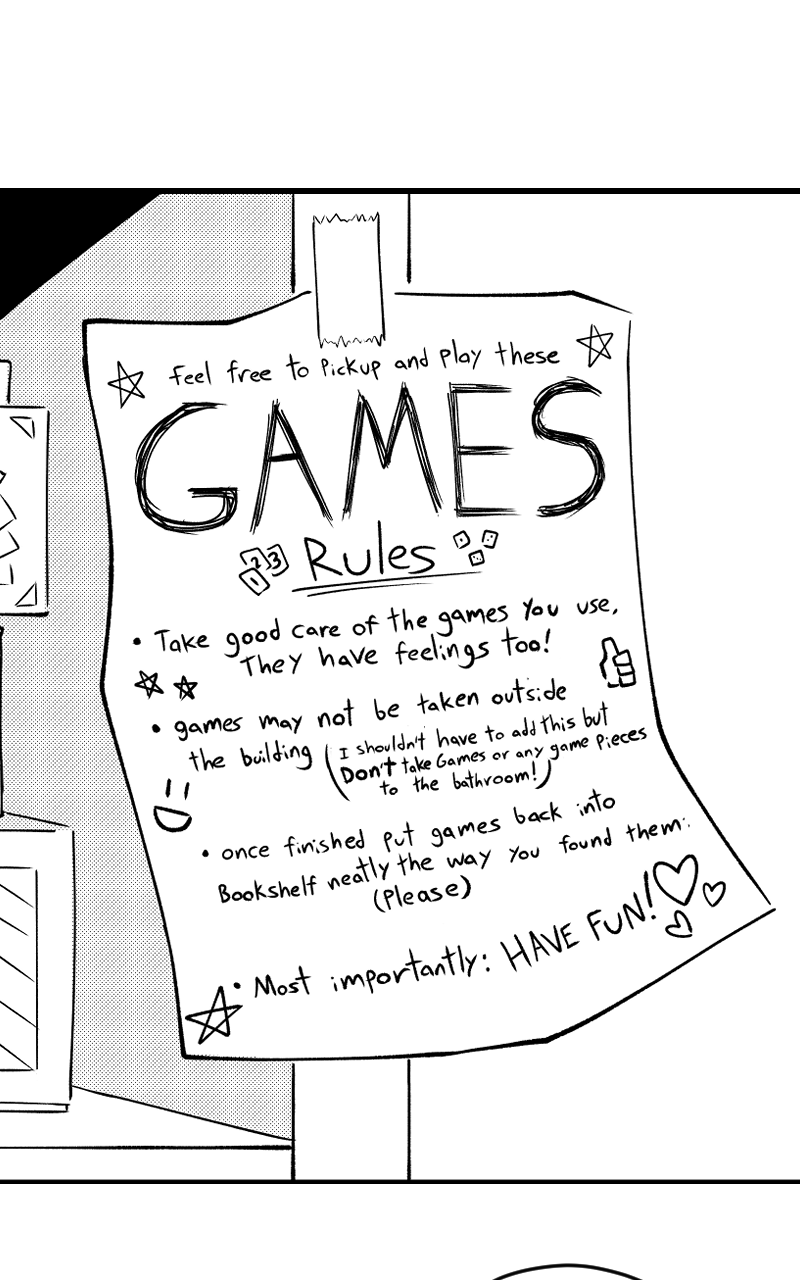 feel free to Pickup and Play these
GAMES
Rules
2 3
1
• Take good care of the games You use,
They have feelings too!
• games may not be taken outside
the building (I shouldn't have to add this but
Don't take Games or any game Pieces
to the bathroom!)
• once finished put games back into
Bookshelf neatly the way you found them.
(Please)
• Most importantly: HAVE FUN!